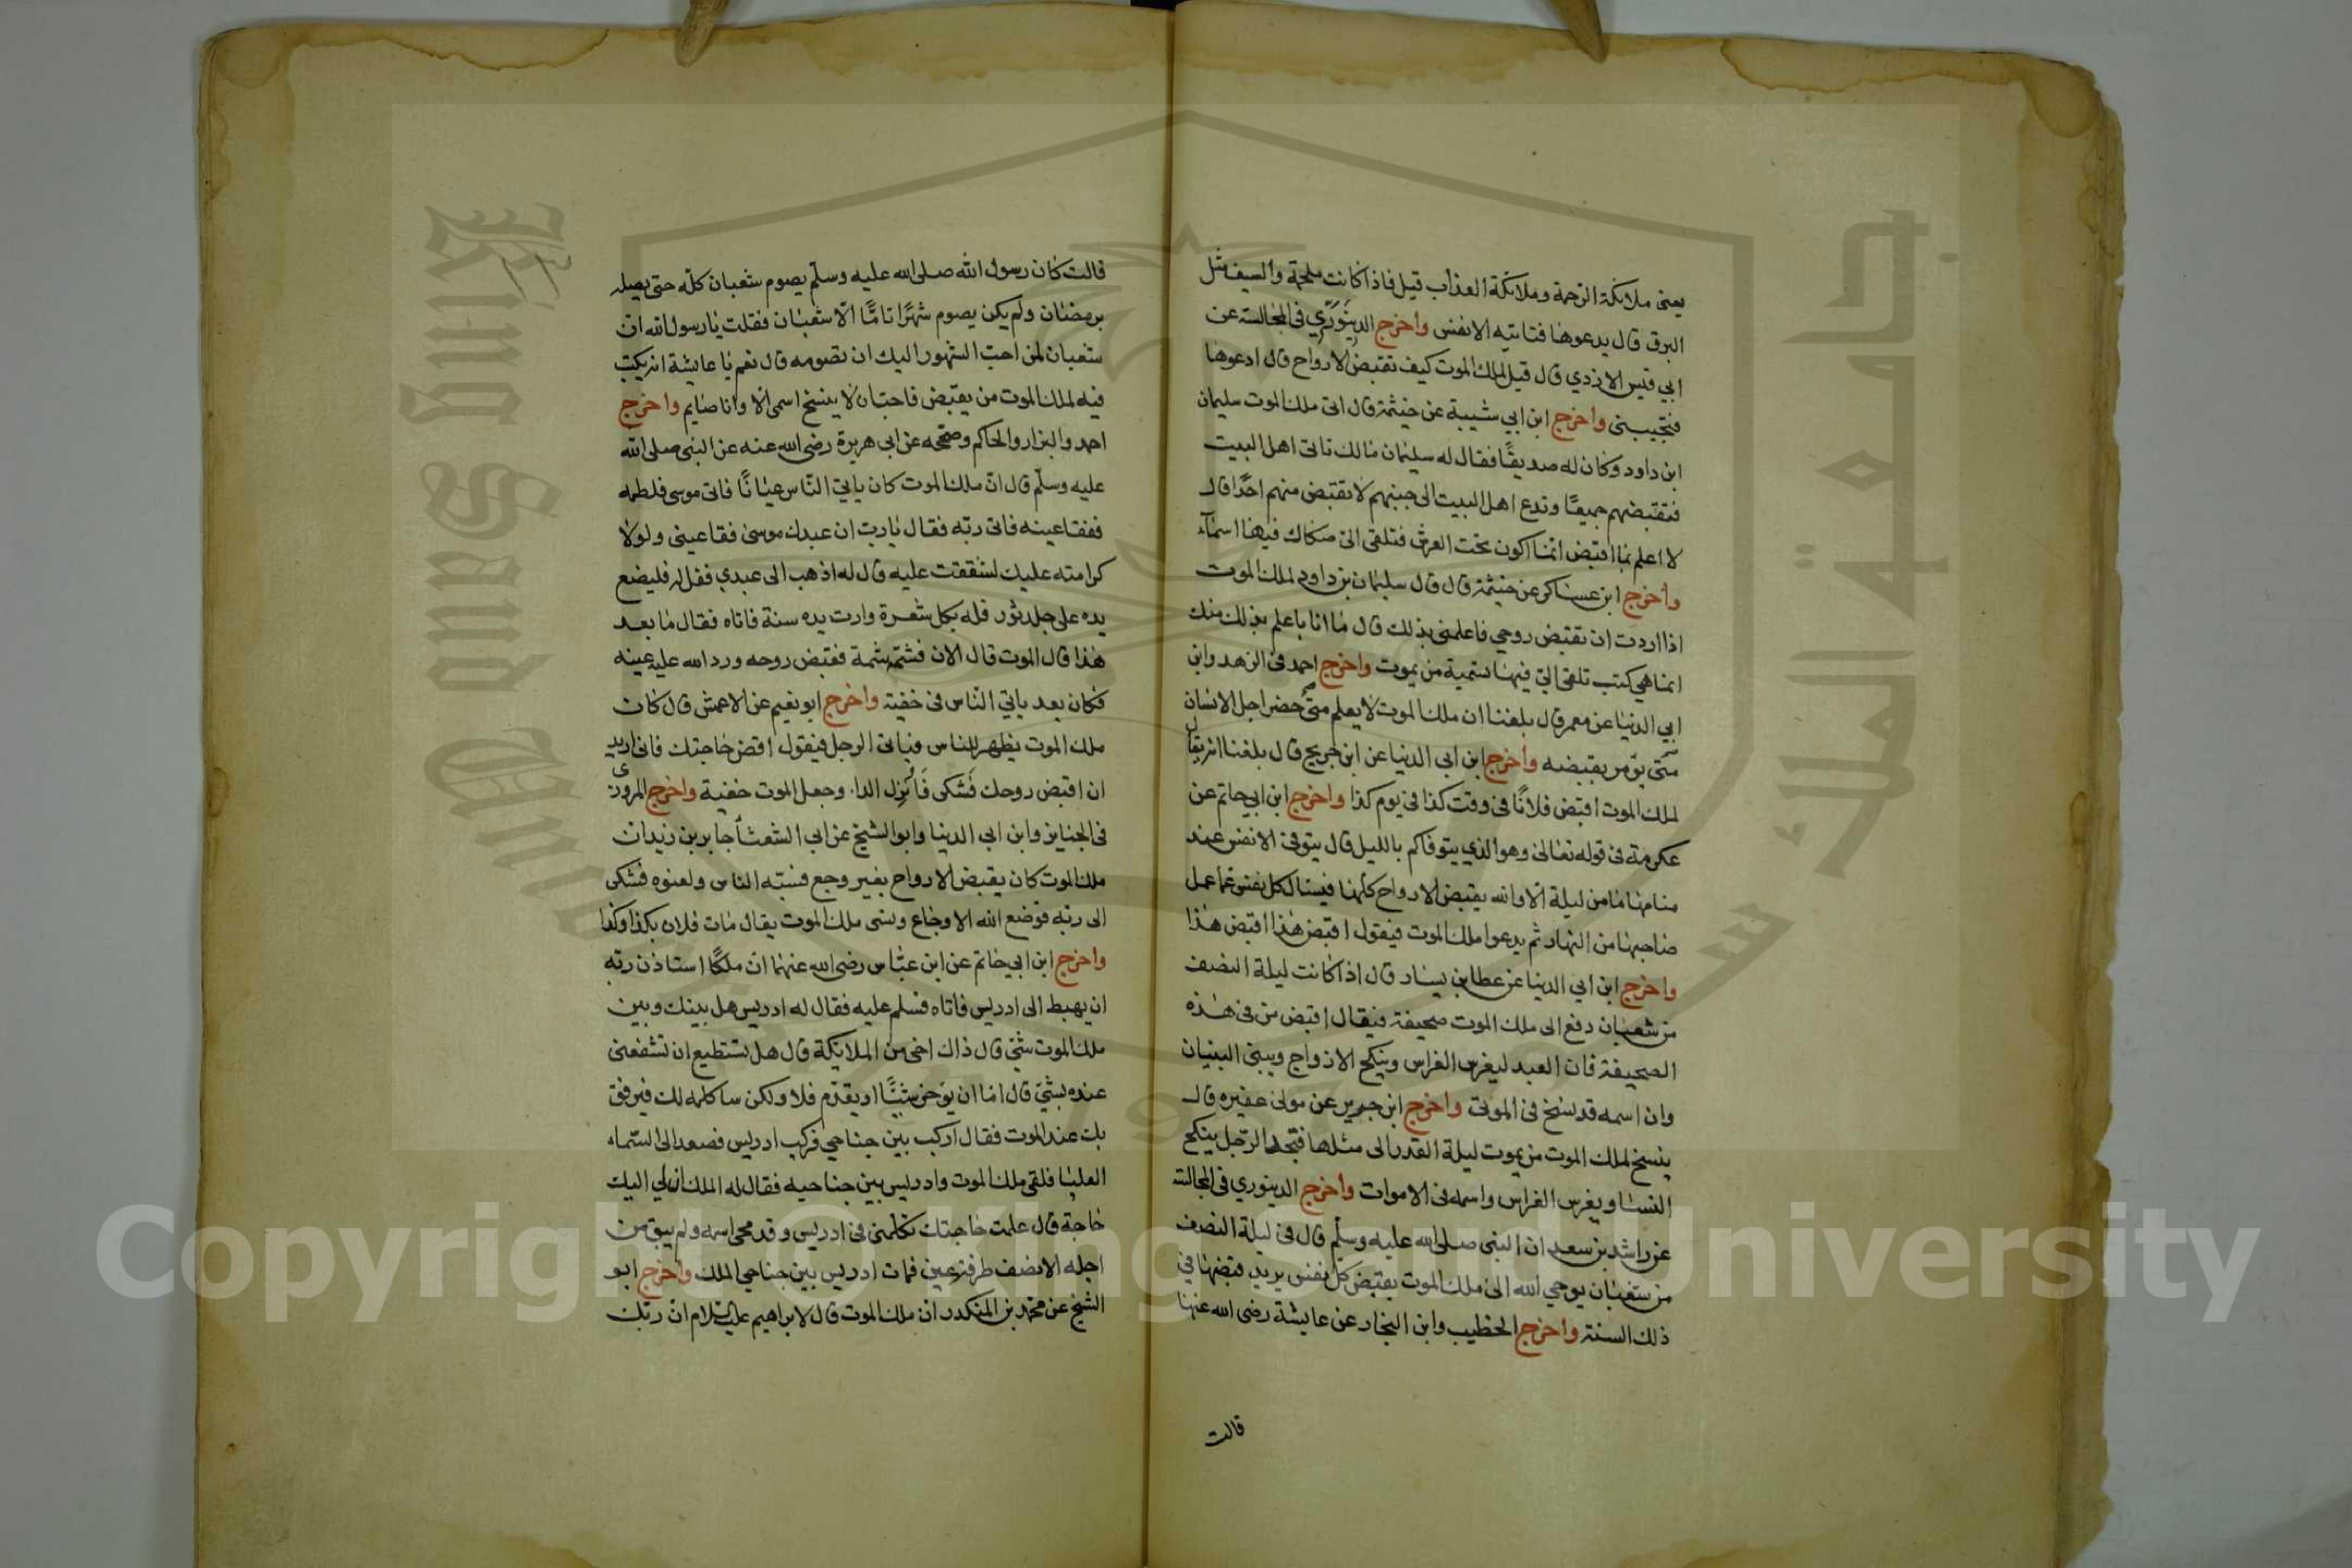 يعنى ملائكة الرحمة وملائكة العذاب قيل فاذا كانت ملحمة والسيف مثل
البرق قال يدعوها فتاتيه الانفس واخرج الدينوري فى المجالسة عن
ابي قيس الازدي قال قيل لملك الموت كيف تقبض الارواح قال ادعوها
فتجيبنى واخرج ابن ابي شيبة عن خيثمة قال اتى ملك الموت سليمان
ابن داود وكان له صديقًا فقال له سليمان مالك تاتى اهل البيت
فتقبضهم جميعًا وتدع اهل البيت الى جنبهم لا تقبض منهم احدًا قال
لا اعلم بما اقبض انما اكون تحت العرش فتلقى الى صكاك فيها اسماء
واخرج ابن عساكر عن خيثمة قال قال سليمان بن داود لملك الموت
اذا اردت ان تقبض روحي فاعلمنى بذلك قال ما انا باعلم بذلك منك
انما هي كتب تلقى الي فيها تسمية من يموت واخرج احمد فى الزهد وابن
ابي الدنيا عن معمر قال بلغنا ان ملك الموت لا يعلم متى حضر اجل الانسان
حتى يؤمر بقبضه واخرج ابن ابى الدنيا عن ابن جريج قال بلغنا انه يقال
لملك الموت اقبض فلانًا فى وقت كذا فى يوم كذا واخرج ابن ابي حاتم عن
عكرمة فى قوله تعالى وهو الذي يتوفاكم بالليل قال يتوفى الانفس عند
منامها ما من ليلة الا والله يقبض الارواح كلها فيسال كل نفس عما عمل
صاحبها من النهار ثم يدعوا ملك الموت فيقول اقبض هذا اقبض هذا
واخرج ابن ابي الدنيا عن عطا بن يسار قال اذا كانت ليلة النصف
من شعبان دفع الى ملك الموت صحيفة فيقال اقبض من فى هذه
الصحيفة فان العبد ليغرس الغراس وينكح الازواج ويبنى البنيان
وان اسمه قد نسخ فى الموتى واخرج ابن جرير عن مولى غفيره قال
ينسخ لملك الموت من يموت ليلة القدر الى مثلها فتجد الرجل ينكح
النسا ويغرس الغراس واسمه فى الاموات واخرج الدينوري فى المجالسة
عن راشد بن سعد ان النبى صلى الله عليه وسلم قال فى ليلة النصف
من شعبان يوحي الله الى ملك الموت بقبض كل نفس يريد قبضها في
ذلك السنة واخرج الخطيب وابن النجار عن عايشة رضى الله عنها
قالت
قالت كان رسول الله صلى الله عليه وسلم يصوم شعبان كله حتى يصله
برمضان ولم يكن يصوم شهرًا تامًا الا شعبان فقلت يا رسول الله ان
شعبان لمن احب الشهور اليك ان تصومه قال نعم يا عايشة انه يكتب
فيه لملك الموت من يقبض فاحب ان لا ينسخ اسمى الا وانا صايم واخرج
احمد والبزار والحاكم وصححه عن ابى هريرة رضى الله عنه عن النبى صلى الله
عليه وسلم قال ان ملك الموت كان ياتي الناس عيانًا فاتى موسى فلطمه
ففقا عينه فاتى ربه فقال يا رب ان عبدك موسى فقا عينى ولولا
كرامته عليك لشققت عليه قال له اذهب الى عبدي فقل له فليضع
يده على جلد ثور فله بكل شعرة وارت يده سنة فاتاه فقال ما بعد
هذا قال الموت قال الان فشمه شمة فقبض روحه ورد الله عليه عينه
فكان بعد ياتي الناس فى خفية واخرج ابو نعيم عن الاعمش قال كان
ملك الموت يظهر للناس فياتى الرجل فيقول اقض حاجتك فانى اريد
ان اقبض روحك فشكى فانزل الدا وجعل الموت خفية واخرج المروزى
فى الجنايز وابن ابي الدنيا وابو الشيخ عن ابي الشعثا جابر بن زيد ان
ملك الموت كان يقبض الارواح بغير وجع فسبه الناس ولعنوه فشكى
الى ربه فوضع الله الاوجاع ونسى ملك الموت يقال مات فلان بكذا وكذا
واخرج ابن ابي حاتم عن ابن عباس رضى الله عنهما ان ملكًا استاذن ربه
ان يهبط الى ادريس فاتاه فسلم عليه فقال له ادريس هل بينك وبين
ملك الموت شئ قال ذاك اخى من الملايكة قال هل تستطيع ان تشفعنى
عنده بشئ قال اما ان يؤخر شيئًا او يقدم فلا ولكن ساكلمه لك فيرفق
بك عند الموت فقال اركب بين جناحي فركب ادريس فصعد الى السماء
العليا فلقى ملك الموت وادريس بين جناحيه فقال له الملك ان لي اليك
حاجة قال علمت حاجتك تكلمنى فى ادريس وقد محي اسمه ولم يبق من
اجله الا نصف طرفة عين فمات ادريس بين جناحي الملك واخرج ابو
الشيخ عن محمد بن المنكدر ان ملك الموت قال لابراهيم عليه السلام ان ربك
جامعة الملك سعود
King Saud University
Copyright © King Saud University